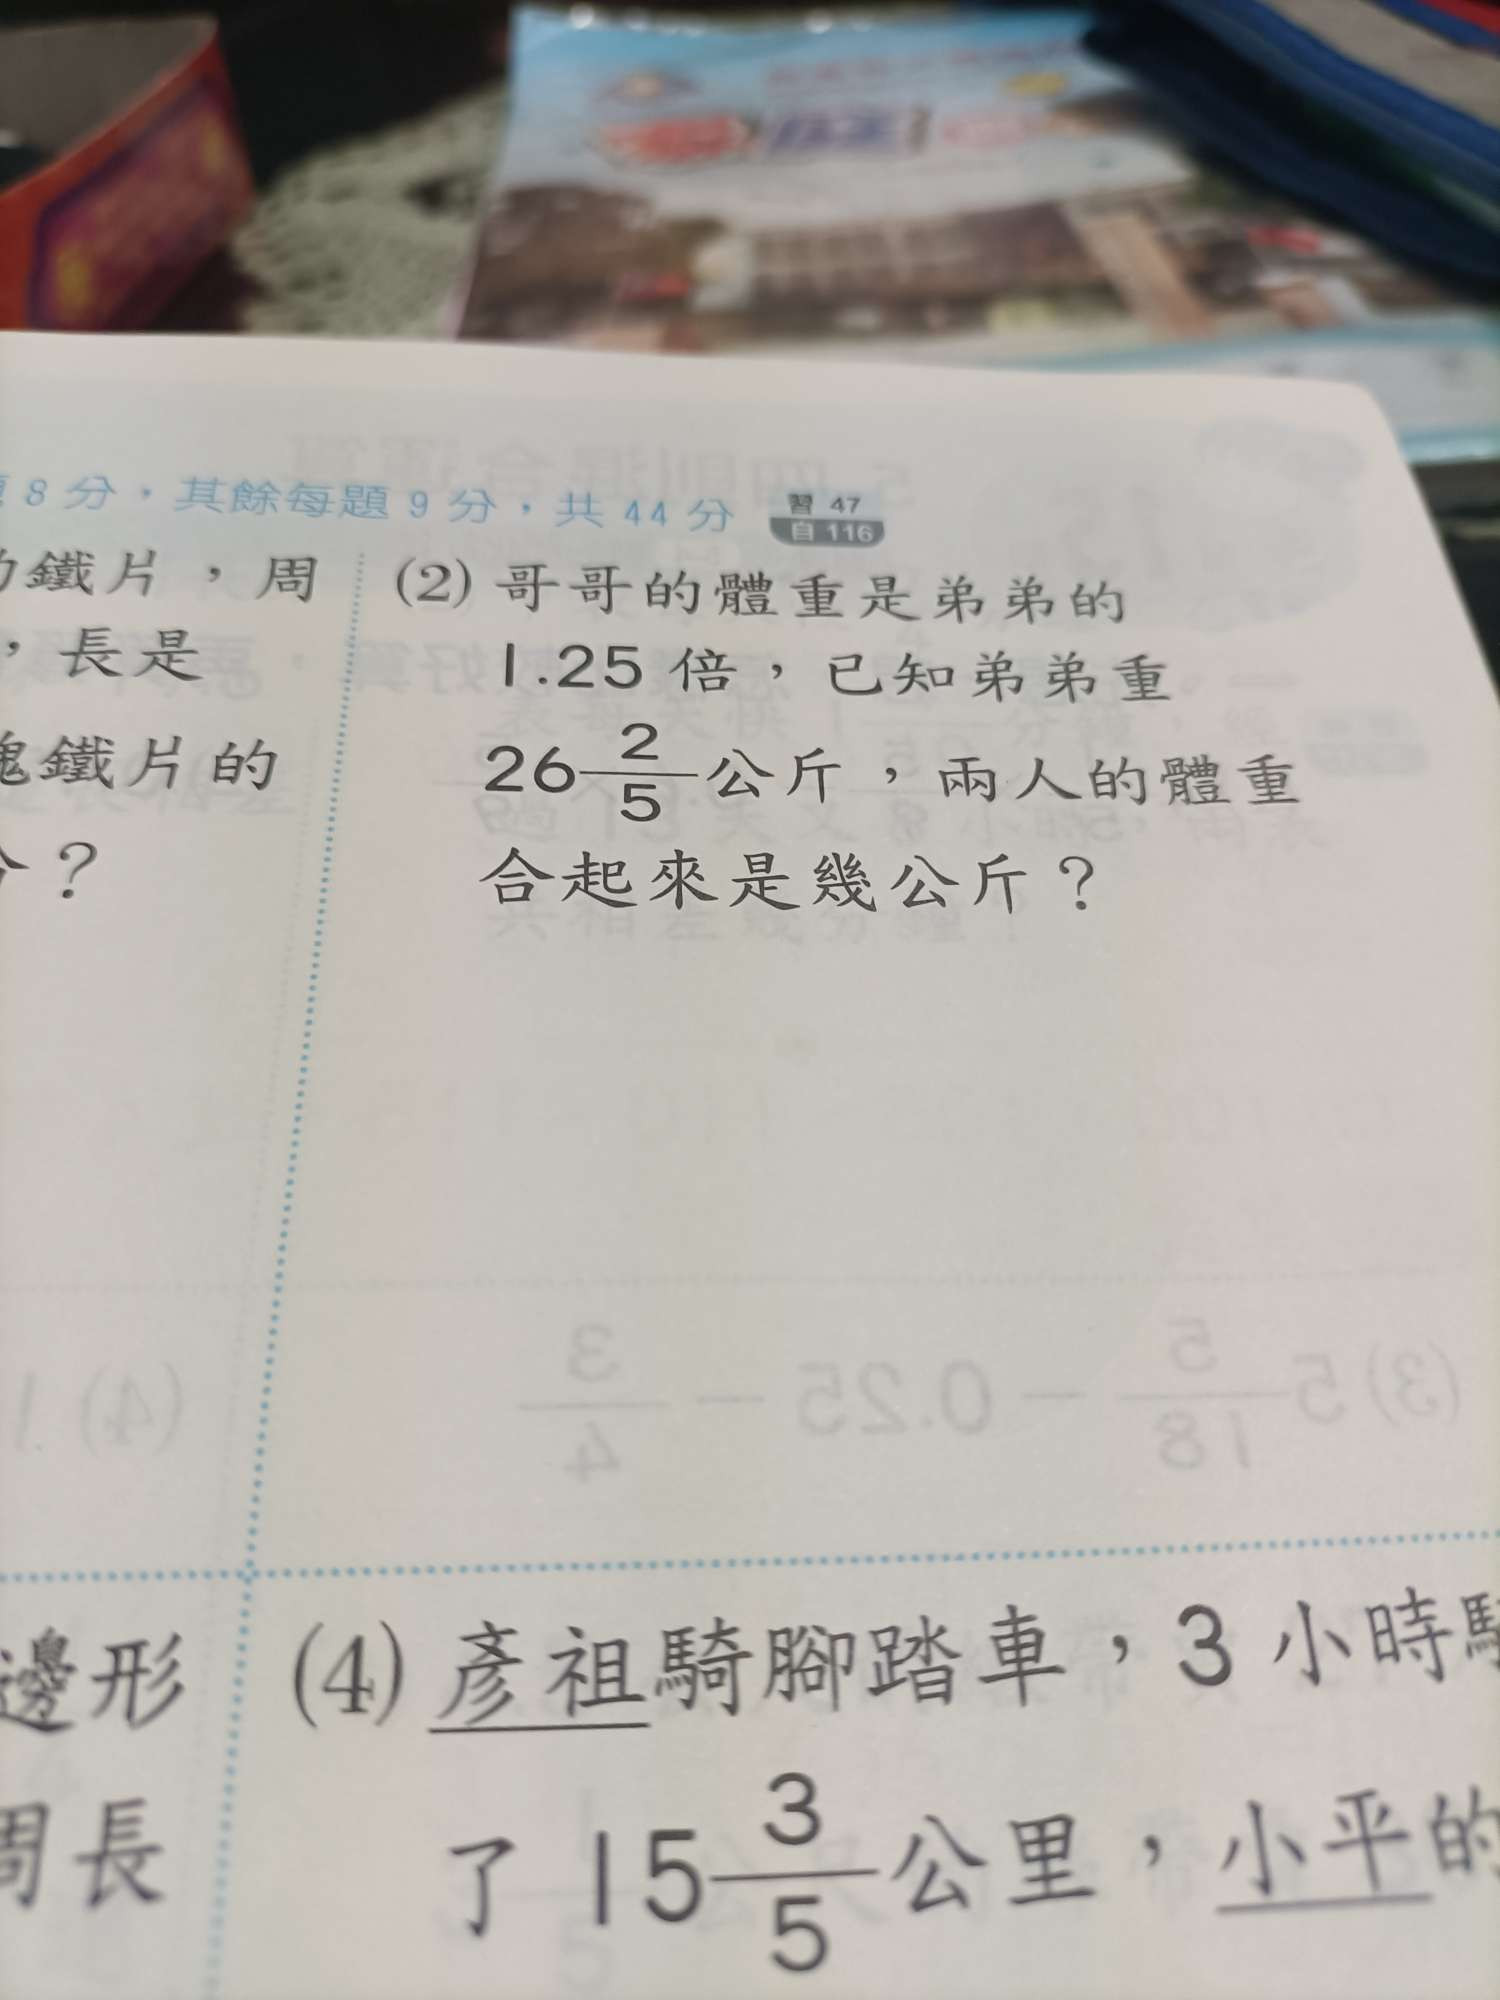 8 分，其餘每題 9 分，共 44 分 習 47
自 116
鐵片，周
，長是
鐵片的
？
(2) 哥哥的體重是弟弟的
1.25 倍，已知弟弟重
26 2/5 公斤，兩人的體重
合起來是幾公斤？
邊形
周長
(4) 彥祖騎腳踏車，3 小時騎
了 15 3/5 公里，小平的